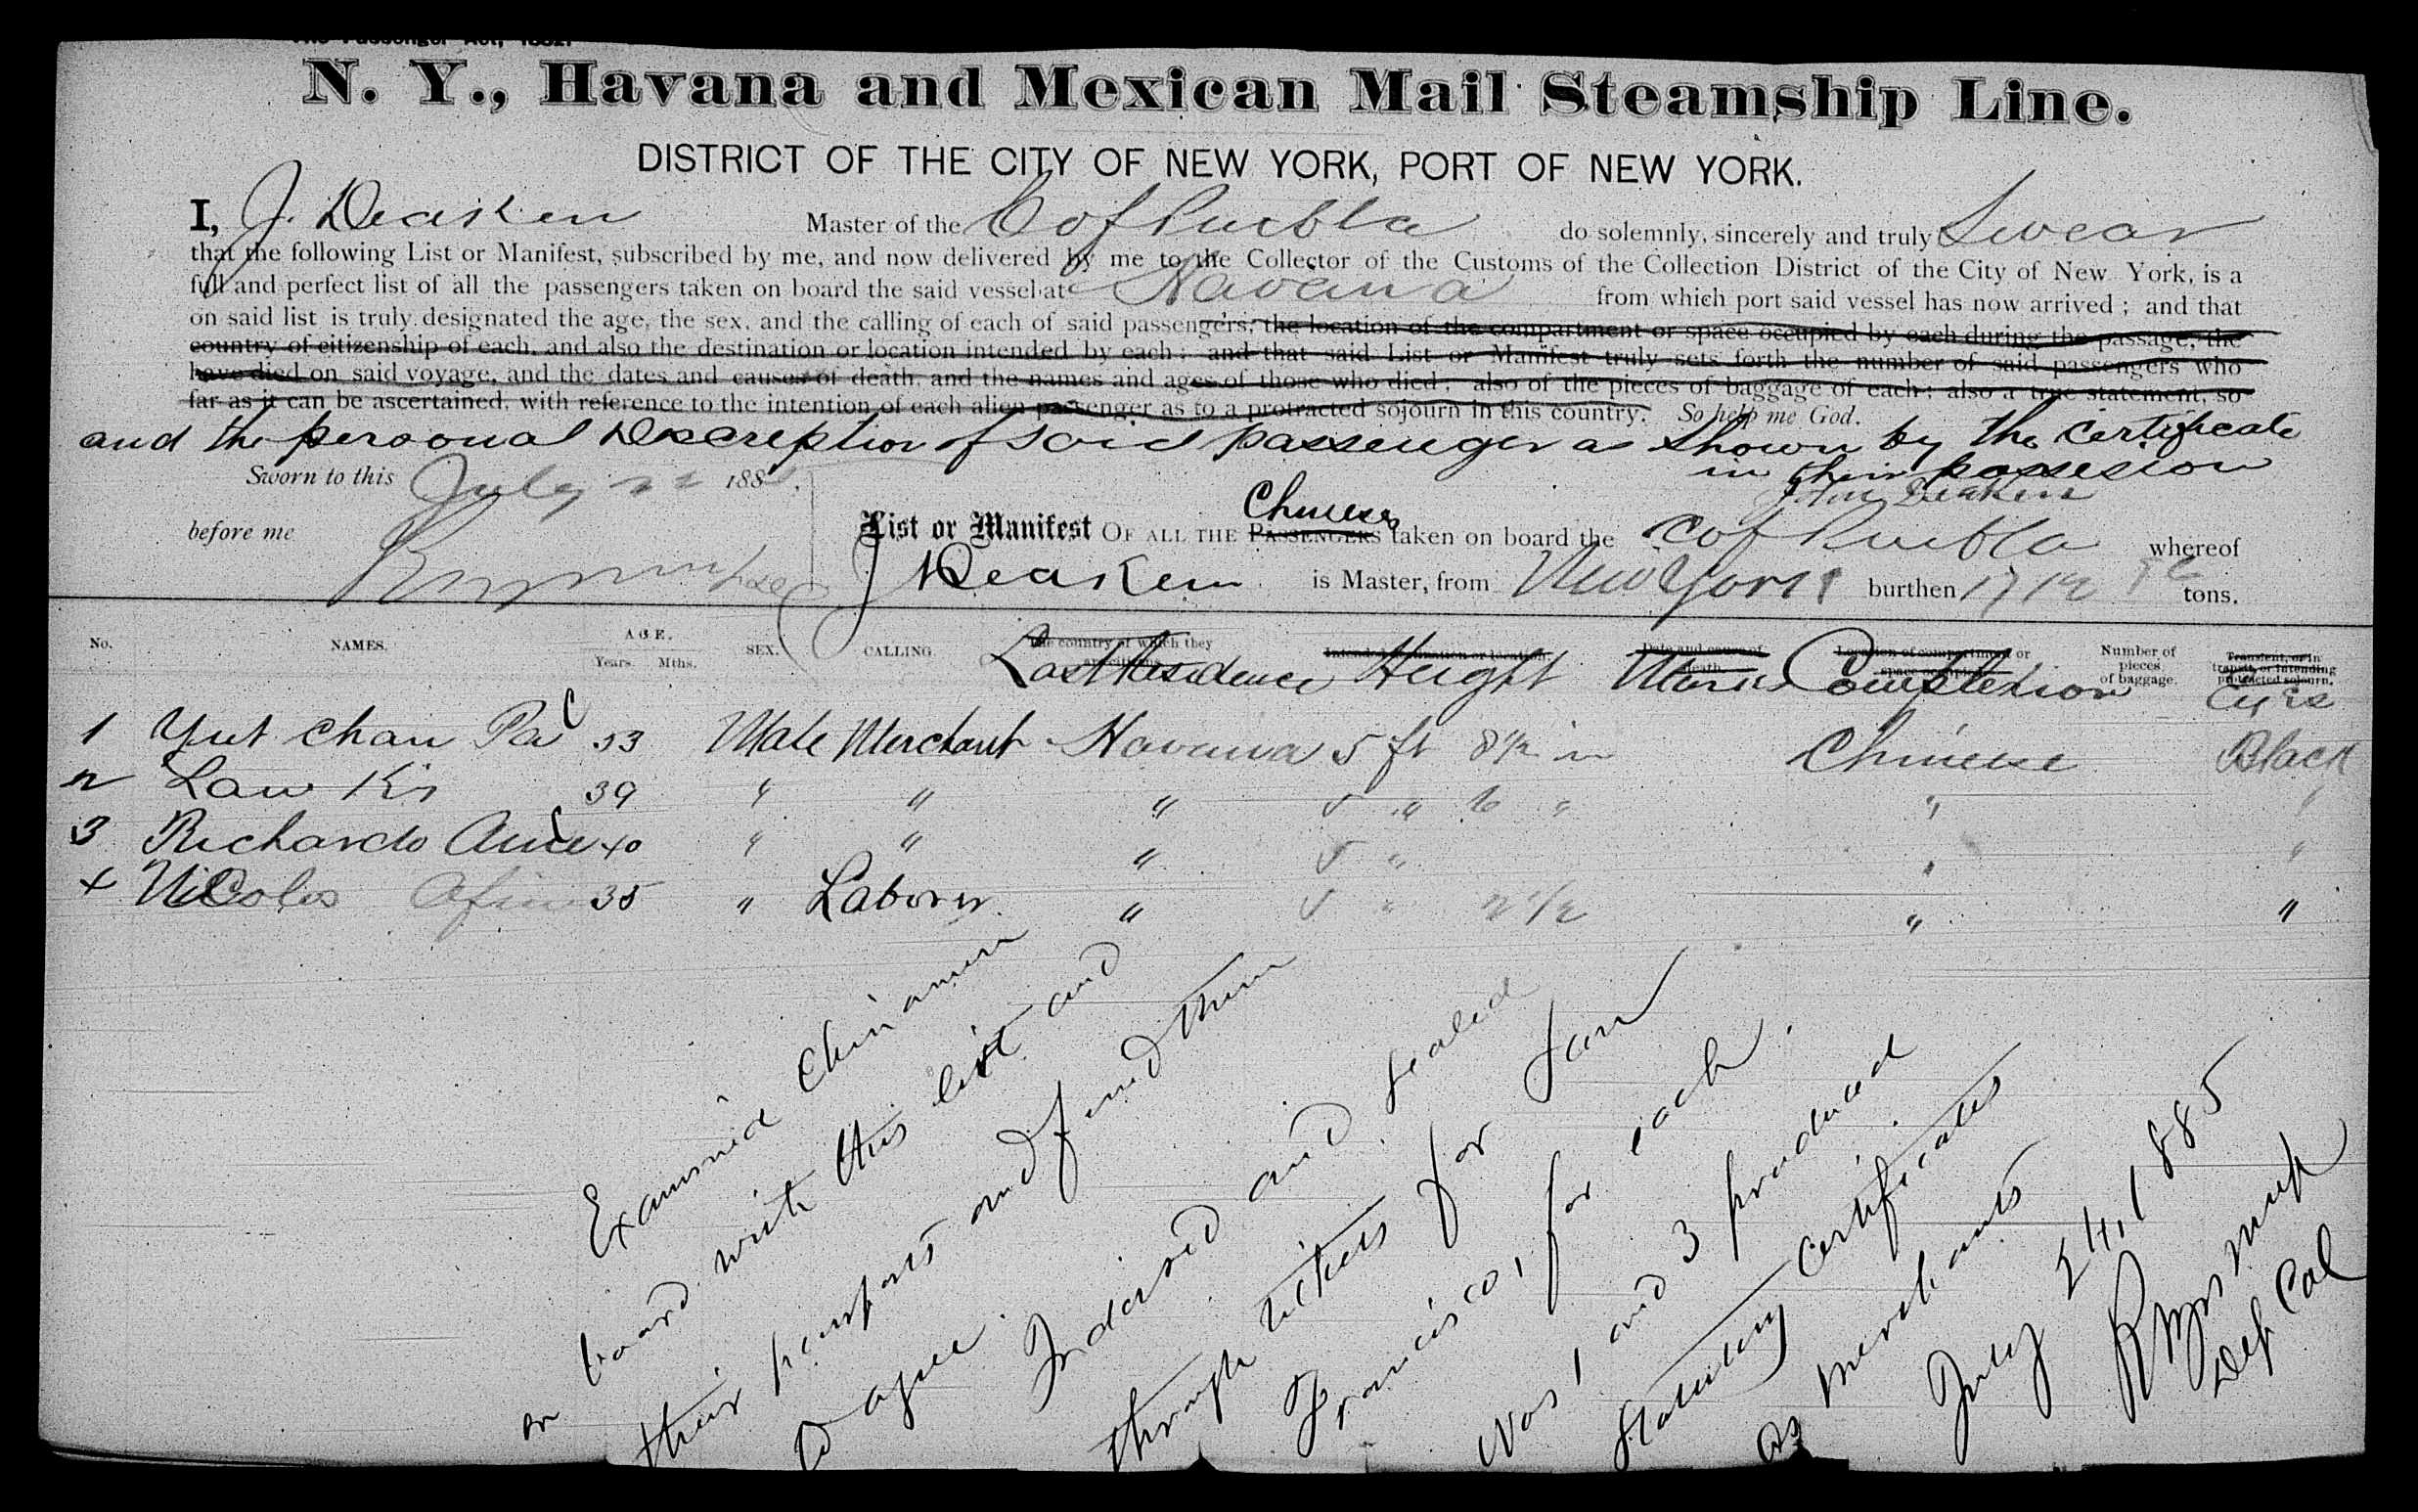 The Passenger Act, 1882.
N. Y., Havana and Mexican Mail Steamship Line.
DISTRICT OF THE CITY OF NEW YORK, PORT OF NEW YORK.
I, J. Deaken Master of the C of Puebla do solemnly, sincerely and truly Swear
that the following List or Manifest, subscribed by me, and now delivered by me to the Collector of the Customs of the Collection District of the City of New York, is a
full and perfect list of all the passengers taken on board the said vessel at Havana from which port said vessel has now arrived; and that
on said list is truly designated the age, the sex, and the calling of each of said passengers, the location of the compartment or space occupied by each during the passage, the
country of citizenship of each, and also the destination or location intended by each: and that said List or Manifest truly sets forth the number of said passengers who
have died on said voyage, and the dates and causes of death, and the names and ages of those who died; also of the pieces of baggage of each; also a true statement, so
far as it can be ascertained, with reference to the intention of each alien passenger as to a protracted sojourn in this country. So help me God.
and the personal Descreption of said passenger as shown by the certificate
in their possesion
Sworn to this July 188
John Deaken
before me
List or Manifest OF ALL THE PASSENGERS Chinese taken on board the C of Puebla whereof
J Deaken is Master, from New York burthen 1712 tons.
No. NAMES. AGE. Years. Mths. SEX. CALLING. The country of which they are citizens. Last Residence Intended destination or location. Height Date and cause of death. Marks Location of compartment or space occupied. Complexion Number of pieces of baggage. Transient, or in transit, or intending protracted sojourn. Eyes
1 Yut Chan Pa 53 Male Merchant Havana 5 ft 8 1/2 in Chinese Black
2 Law Ki 39 " " " 5 " 6 " " "
3 Richardo 40 " " " 5 " " "
4 Nicolas 35 " Laborer " 5 " 2 1/2 " "
Examined Chinamen
on board with this list and
their passports and find them
to agree. Indorsed and sealed
through tickets for San
Francisco, for each.
Nos 1 and 3 produced
Statutory Certificates
as merchants
July 24, 1885
Dep Col